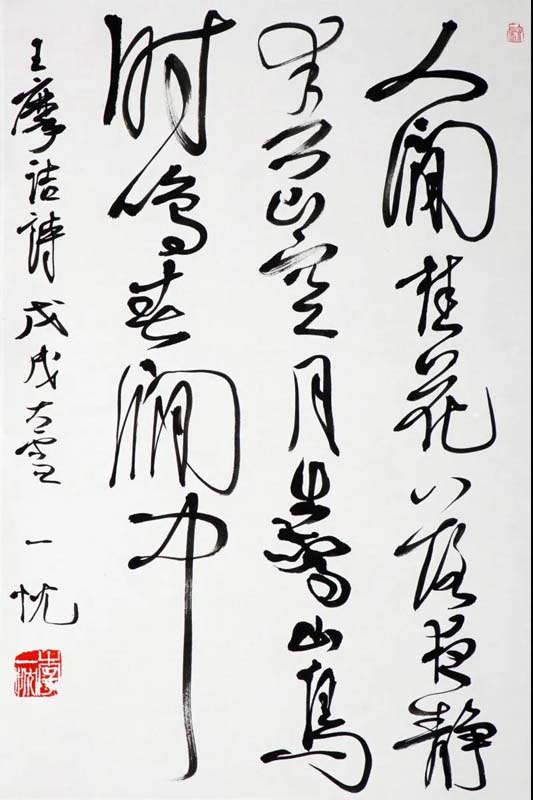 人閒桂花落夜靜
春山空月出驚山鳥
時鳴春澗中
王摩詰詩 戊戌大雪 一忱